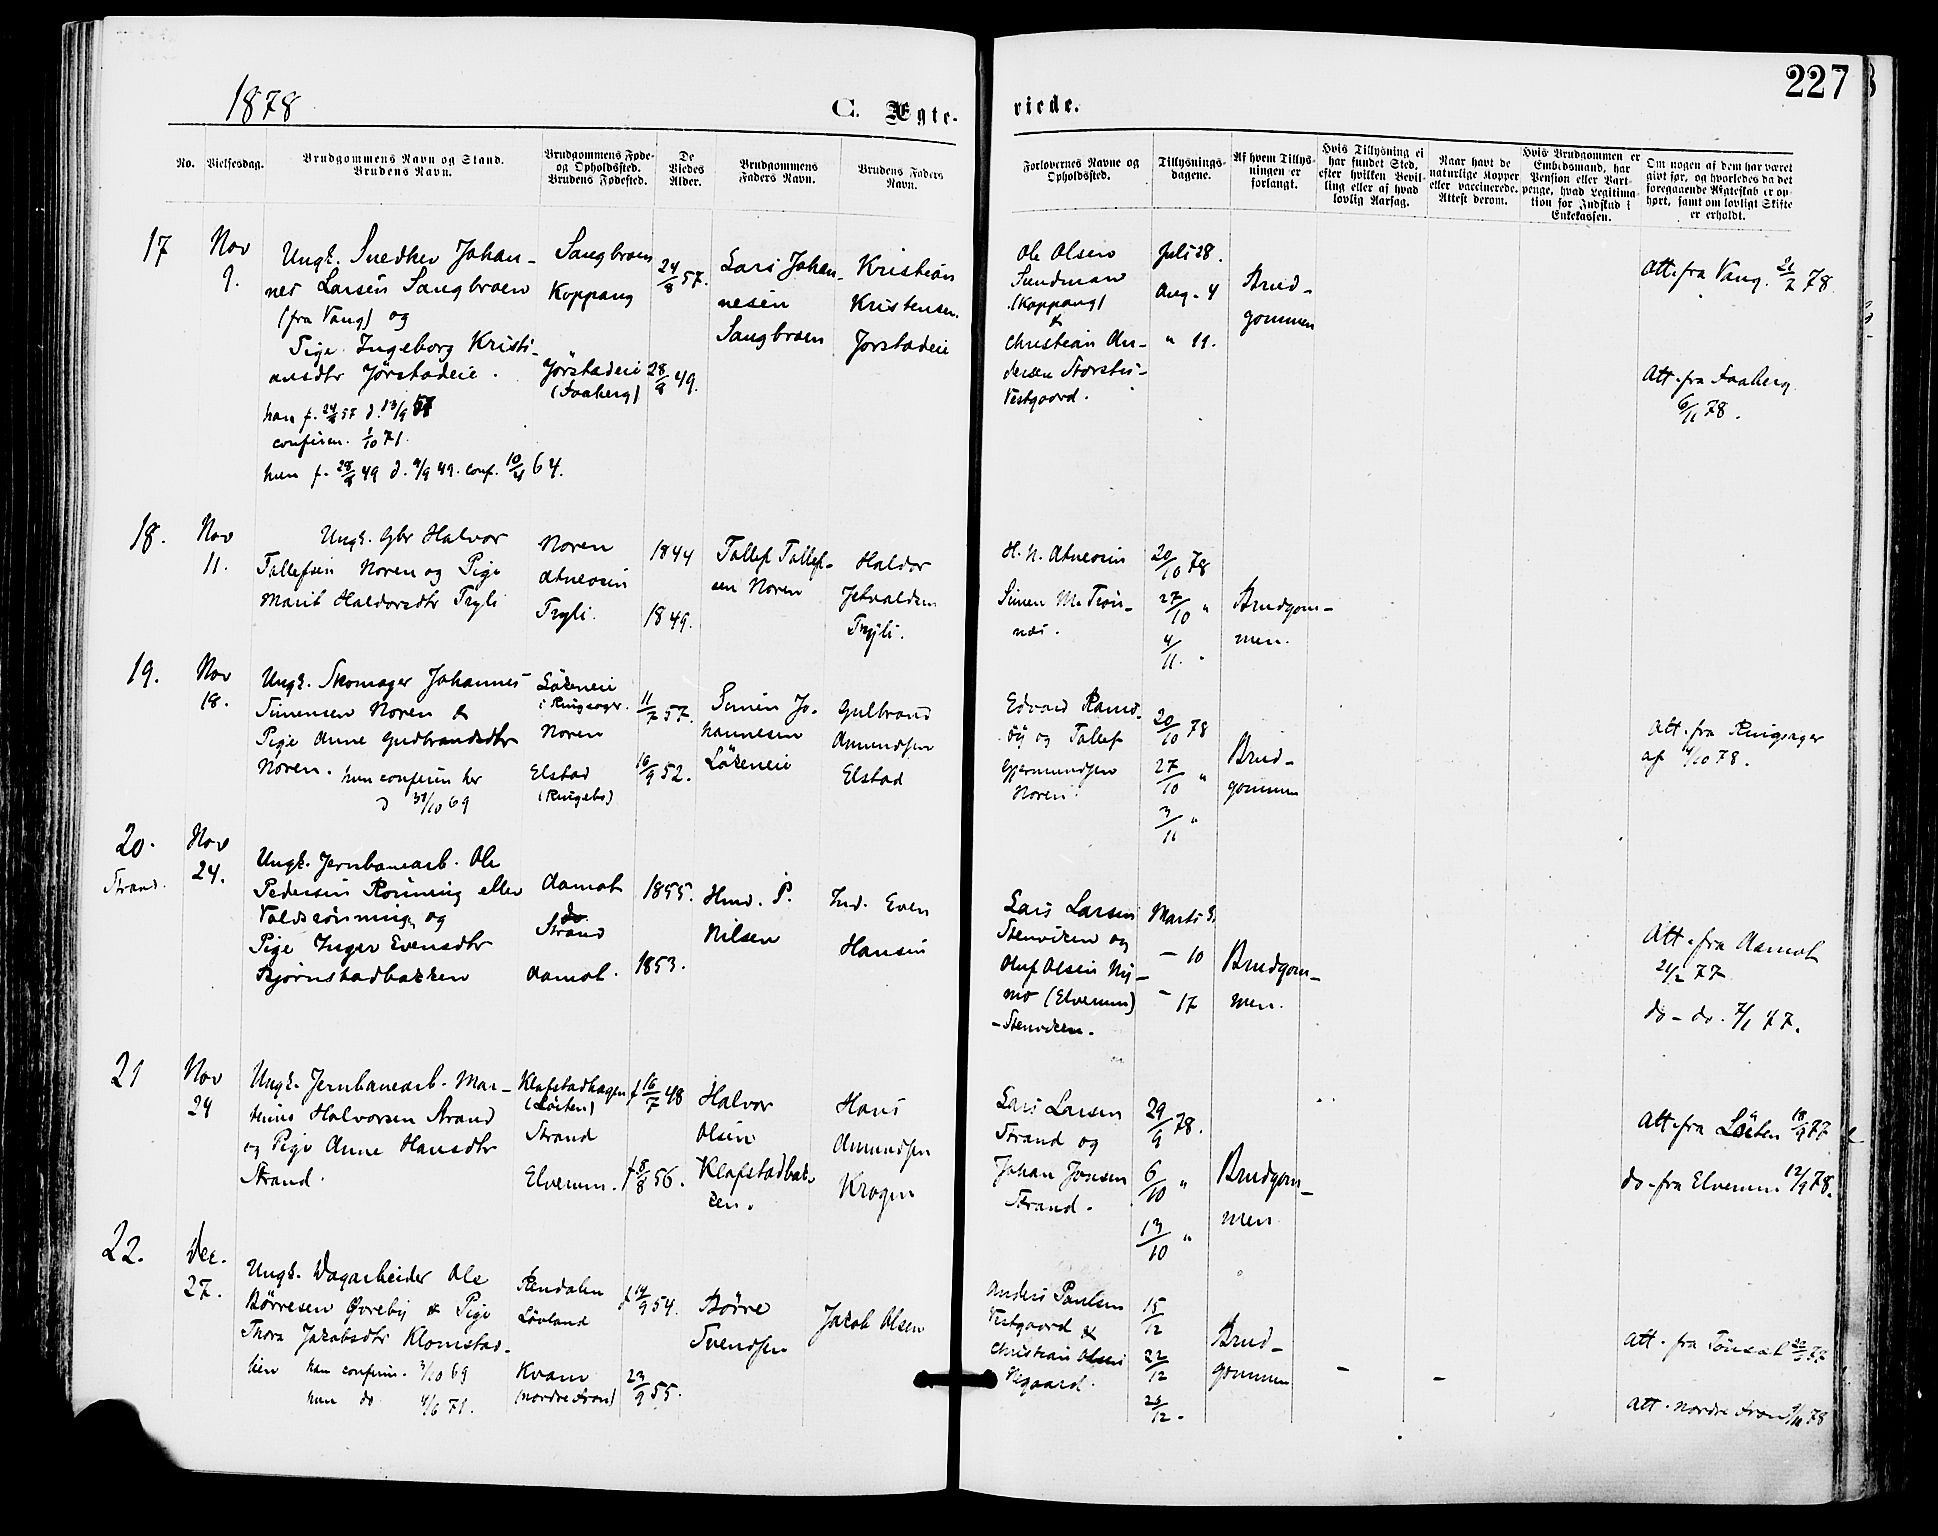 1878
C. Ægte-
viede.
227
No.
Vielsesdag.
Brudgommens Navn og Stand.
Brudens Navn.
Brudgommens Føde-
og Opholdssted.
Brudens Fødested.
De
Viedes
Alder.
Brudgommens
Faders Navn.
Brudens Faders
Navn.
Forlovernes Navne og
Opholdssted.
Tillysnings-
dagene.
Af hvem Tillys-
ningen er
forlangt.
Hvis Tillysning ei
har fundet Sted,
efter hvilken Bevil-
ling eller af hvad
lovlig Aarsag.
Naar havt de
naturlige Kopper
eller vaccinerede.
Attest derom.
Hvis Brudgommen er
Embedsmand, har
Pension eller Vart-
penge, hvad Legitima-
tion for Indskud i
Enkekassen.
Om nogen af dem har været
givt før, og hvorledes da det
foregaaende Ægteskab er op-
hørt, samt om lovligt Skifte
er erholdt.
17
Nov
9.
Ungk. Snedker Johan-
nes Larsen Sangbroen
(fra Vang) og
Pige Ingeborg Kristi-
ansdtr Jørstadeie.
han f. 24/8 57 d. 13/9 57
confirm. 1/10 71.
hun f. 28/8 49 d. 9/9 49. conf. 10/4 64.
Sangbroen
Koppang
Jørstadeie
(Faaberg)
24/8 57.
28/8 49.
Lars Johan-
nesen
Sangbroen
Kristian
Kristensen
Jørstadeie
Ole Olsen
Sundmoen
(Koppang)
&
Christian An-
dersen Storstu-
Vestgaard.
Juli 28.
Aug. 4
" 11.
Brud-
gommen
Att. fra Vang. 21/2 78
Att. fra Faaberg
6/11 78.
18.
Nov
11.
Ungk. Gbr Halvor
Tollefsen Noren og Pige
Marit Haldorsdtr Tryli
Noren
Atneosen
Tryli.
1844
1849.
Tollef Tollef-
sen Noren
Haldor
Tryli.
H. N. Atneosen
Simen M. Trøn-
nes.
20/10 78
27/10 "
4/11. "
Brudgom-
men.
19.
Nov
18.
Ungk. Skomager Johannes
Simensen Noren &
Pige Anne Gudbrandsdtr
Noren. hun confirm her
3/10 69
Løkeneie
i Ringsager.
Noren
Elstad
(Ringebo)
11/7 57.
16/9 52.
Simen Jo-
hannesen
Løkeneie
Gulbrand
Amundsen
Elstad
Edvard Rams-
øy og Tollef
Gjermundsen
Noren.
20/10 78
27/10 "
3/11 "
Brud-
gommen
Att. fra Ringsager
af 4/10 78.
20.
Strand.
Nov
24.
Ungk. Jernbanearb. Ole
Pedersen Rønning eller
Voldsrønning og
Pige Inger Evensdtr
Bjørnstadbakken
Aamot
do
Strand
Aamot.
1855.
1853.
Hmd. P.
Nilsen
Ind. Even
Hansen
Lars Larsen
Stenviken og
Oluf Olsen Ny-
mo (Elverum)
- Stenviken.
Marts 3.
- 10
- 17
Brudgom-
men.
Att. fra Aamot
21/2 77
do - do. 7/1 77.
21
Nov
24
Ungk. Jernbanearb. Mar-
thinus Halvorsen Strand
og Pige Anne Hansdtr
Strand.
Klafstadhagen
(Løiten)
Strand
Elverum.
f 16/7 48
f 8/8 56.
Halvor
Olsen
Klafstadbak-
ken.
Hans
Amundsen
Krogen
Lars Larsen
Strand og
Johan Jonsen
Strand.
29/9 78.
6/10 "
13/10 "
Brudgom-
men
Att. fra Løiten 18/9 77
do - fra Elverum 12/9 78.
22.
Dec.
27.
Ungk. Dagarbeider Ole
Børresen Øvreby & Pige
Thora Jakobsdtr Klomstad-
lien han confirm. 3/10 69
hun do 4/6 71.
Rendalen
Løvland
Kvam
(Nordre Fron)
f 14/9 54.
23/9 55.
Børre
Svendsen
Jakob Olsen
Anders Paulsen
Vestgaard &
Christian Olsen
Vegaard.
15/12
22/12
26/12.
Brud-
gommen
Att. fra Tønset
Att. Nordre Fron 78